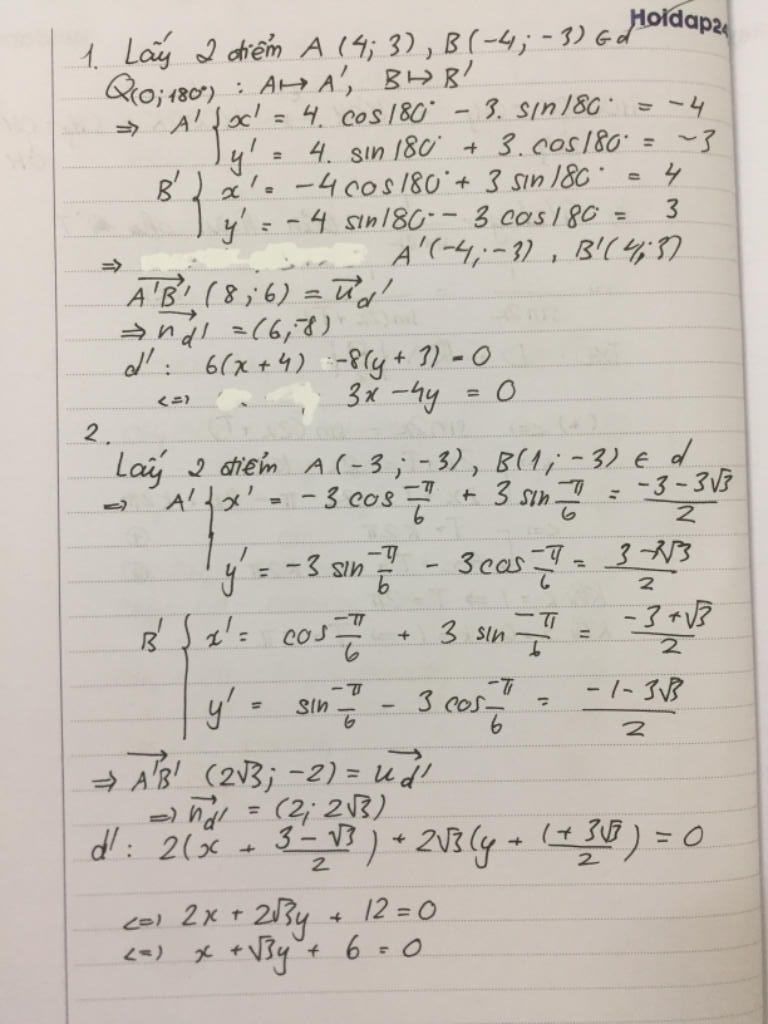 Hoidap24
1. Lấy 2 điểm A (4; 3), B(-4; -3) ∈ d
Q(0; 180°) : A ↦ A', B ↦ B'
⇒ A' { x' = 4. cos180° - 3. sin180° = -4
y' = 4. sin180° + 3. cos180° = -3
B' { x' = -4 cos180° + 3 sin180° = 4
y' = -4 sin180° - 3 cos180° = 3
⇒ A'(-4; -3), B'(4; 3)
A'B' (8; 6) = u d'
⇒ n d' = (6; -8)
d' : 6(x + 4) - 8(y + 3) = 0
<=> 3x - 4y = 0
2.
Lấy 2 điểm A (-3; -3), B(1; -3) ∈ d
⇒ A' { x' = -3 cos -π/6 + 3 sin -π/6 = (-3 - 3√3)/2
y' = -3 sin -π/6 - 3 cos -π/6 = (3 - 3√3)/2
B' { x' = cos -π/6 + 3 sin -π/6 = (-3 + √3)/2
y' = sin -π/6 - 3 cos -π/6 = (-1 - 3√3)/2
⇒ A'B' (2√3; -2) = u d'
⇒ n d' = (2; 2√3)
d' : 2(x + (3 - √3)/2) + 2√3(y + (1 + 3√3)/2) = 0
<=> 2x + 2√3y + 12 = 0
<=> x + √3y + 6 = 0